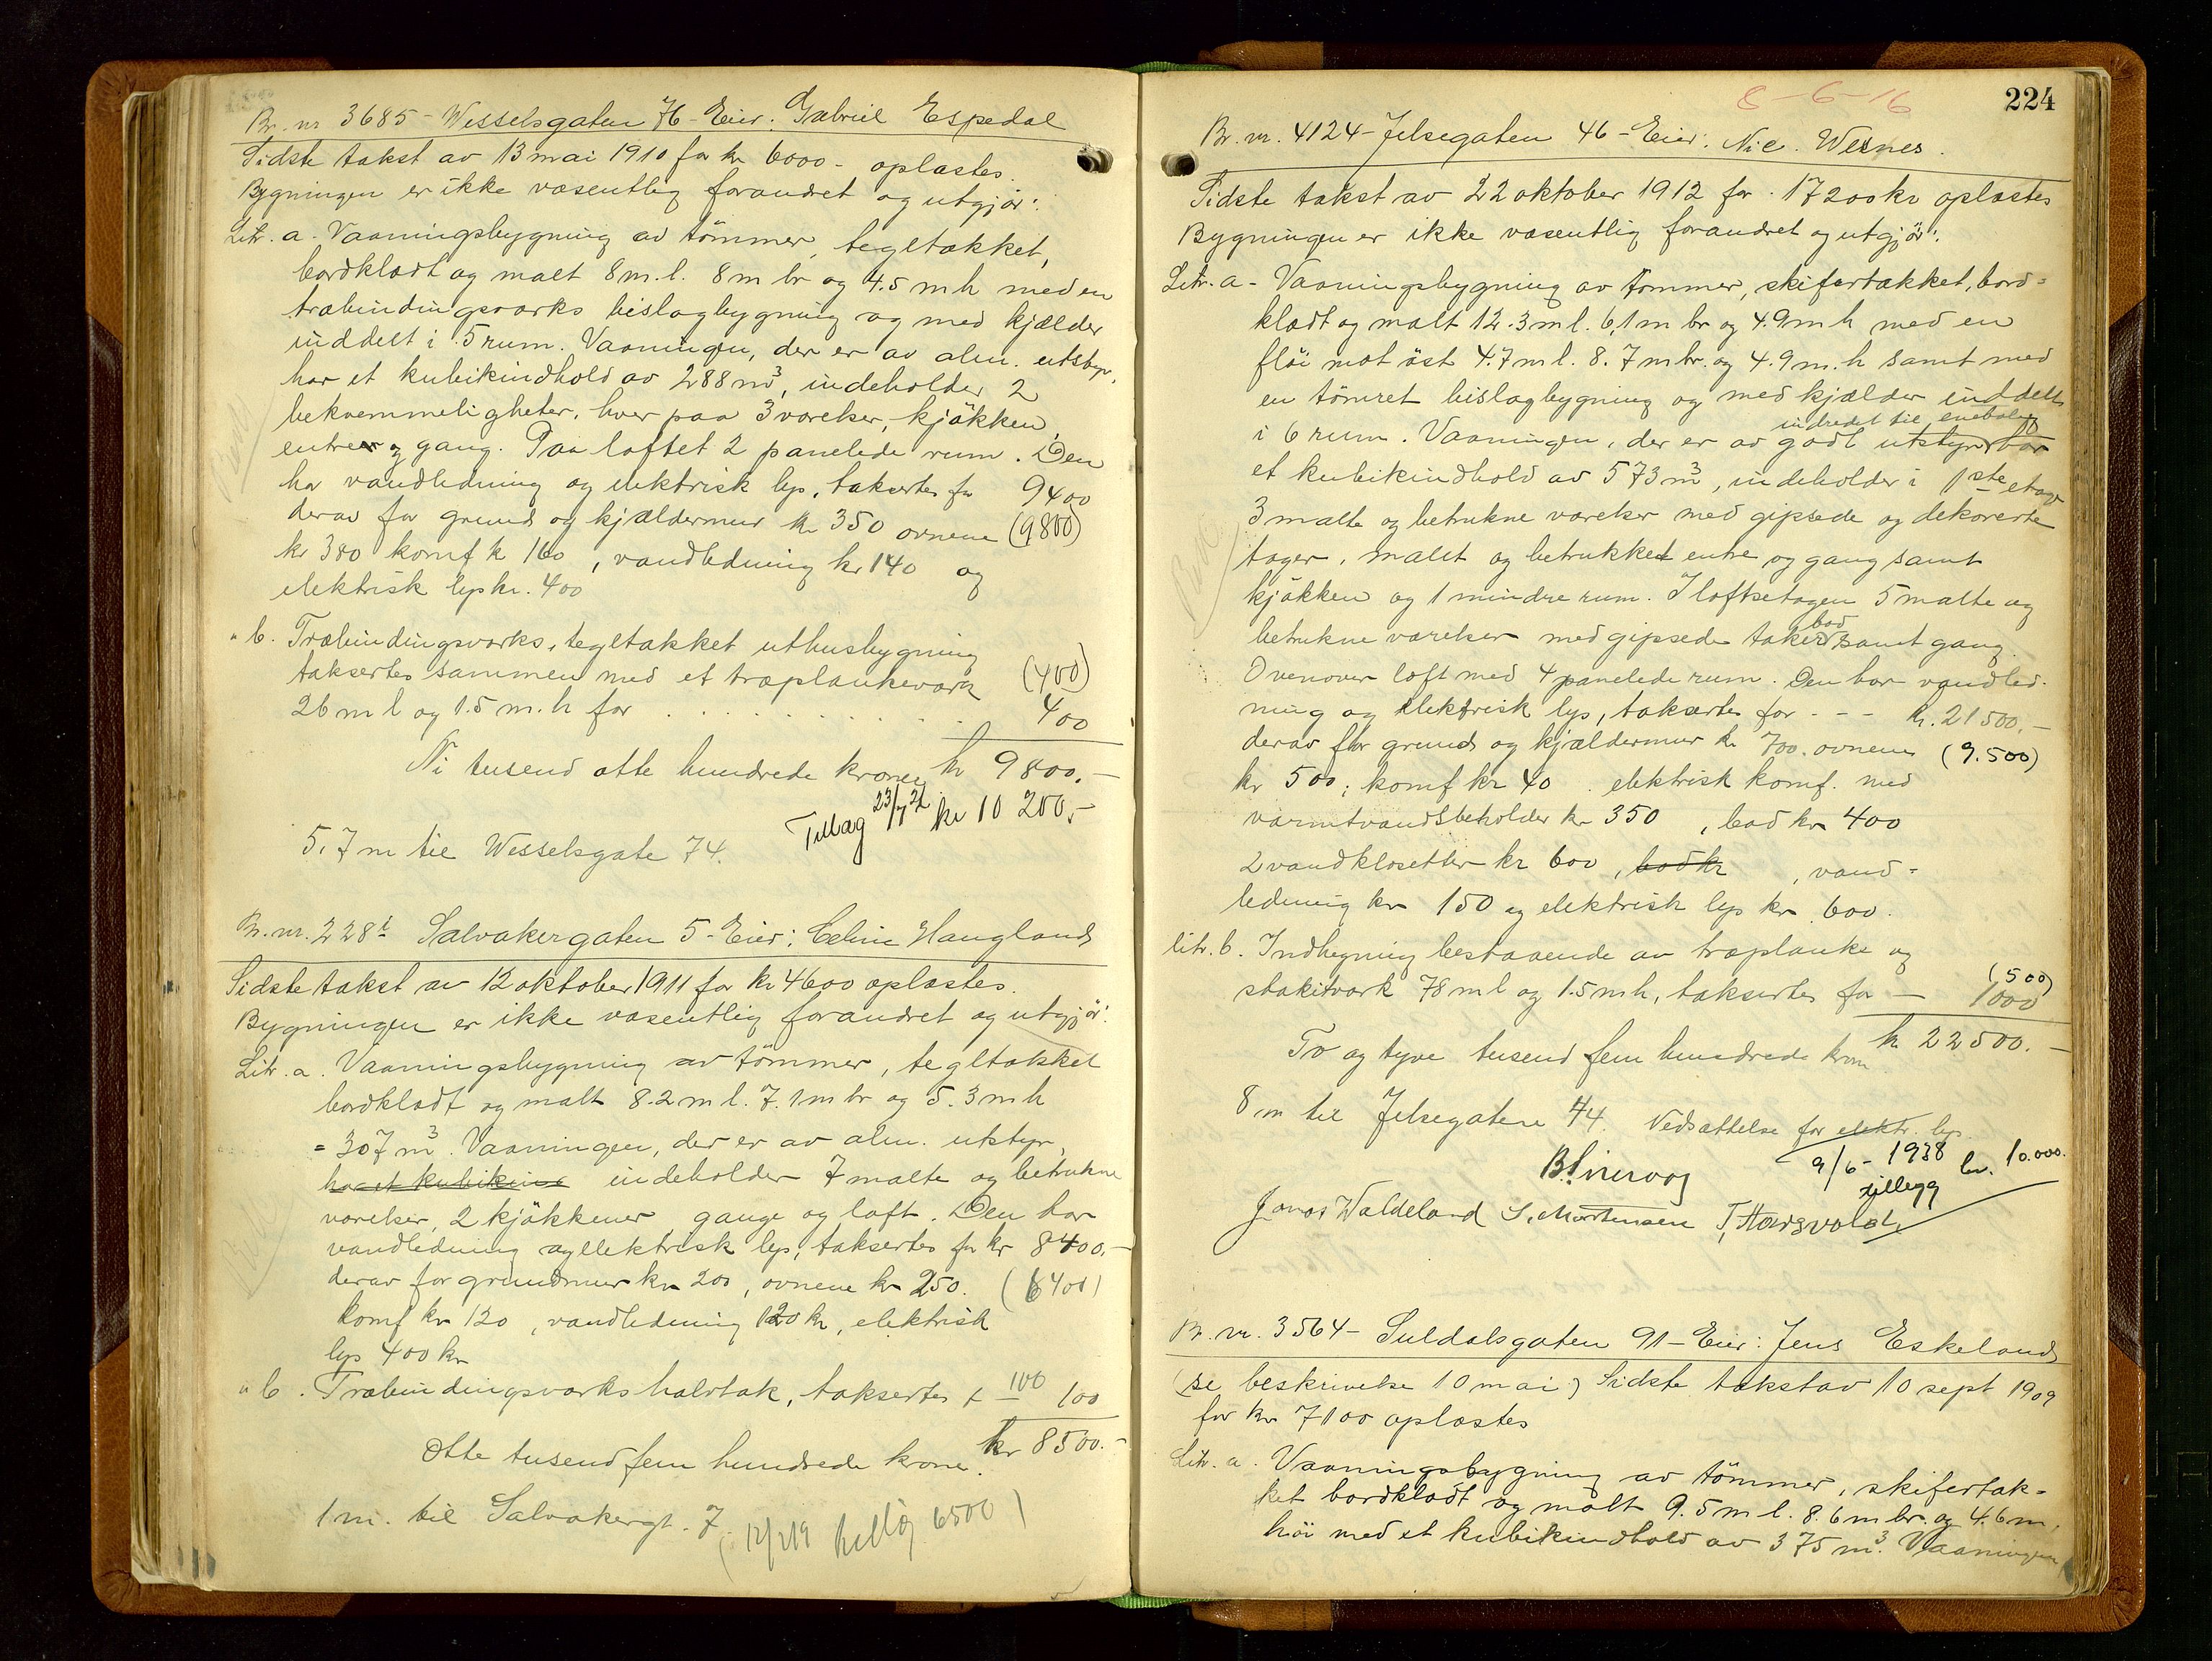 Br. nr 3685 - Wesselsgaten 76 - Eier: Gabriel Espedal
Sidste takst av 13 mai 1910 for kr 6000 - oplæstes.
Bygningen er ikke væsentlig forandret og utgjør:
Litr. a. Vaaningsbygning av tømmer, tegltækket,
bordklædt og malt 8 m. l. 8 m br og 4.5 m h med en
træbindingsværks bislagbygning og med kjælder
inddelt i 5 rum. Vaaningen, der er av alm. utstyr,
har et kubikindhold av 288 m³, indeholder 2
bekvemmeligheter, hver paa 3 værelser, kjøkken,
entre og gang. Paa loftet 2 panelede rum. Den
har vandledning og elektrisk lys, takseres for 9400
derav for grund og kjældermur kr 350 ovnene (9800)
kr 380 komf k 160, vandledning kr 140 og
elektrisk lys kr. 400
" b. Træbindingsværks, tegltækket uthusbygning
takseres sammen med et træplankeværk (400)
26 m l og 1.5 m. h for . . . . . . . . 400
Ni tusend otte hundrede kroner kr 9800.-
Tillæg 23/7 21 kr 10 200,-
5.7 m til Wesselsgate 74.
Br. nr. 228 Salvakergaten 5 - Eier: Celine Haugland
Sidste takst av 12 oktober 1911 for kr 4600 oplæstes.
Bygningen er ikke væsentlig forandret og utgjør:
Litr. a. Vaaningsbygning av tømmer, tegltækket
bordklædt og malt 8.2 m l. 7.1 m br og 5.3 m h
= 307 m³. Vaaningen, der er av alm. utstyr,
har et kubikind indeholder 7 malte og betrukne
værelser, 2 kjøkkener, gange og loft. Den har
vandledning og elektrisk lys, takseres for kr 8400.-
derav for grundmur kr 200, ovnene kr 250. (6400)
komf kr 120, vandledning 120 kr, elektrisk
lys 400 kr
" b. Træbindingsværks halvtak, takseres f 100 100
Otte tusend fem hundrede krone. kr 8500.-
1 m. til Salvakergt. 7.
(12/2 19 tillæg 6500)
8-6-16
224
Br. nr. 4124 - Jelsegaten 46 - Eier: Nic. Wesnes.
Sidste takst av 22 oktober 1912 for 17200 kr oplæstes
Bygningen er ikke væsentlig forandret og utgjør:
Litr. a - Vaaningsbygning av tømmer, skifertækket, bord=
klædt og malt 12.3 m l. 6,1 m br og 4.9 m h med en
fløi mot øst 4.7 m l. 8.7 m br. og 4.9 m. h samt med
en tømret bislagbygning og med kjælder inddelt
indredet til enebolig
i 6 rum. Vaaningen, der er av godt utstyr har
et kubikindhold av 573 m³, indeholder i 1ste etage
3 malte og betrukne værelser med gipsede og dekorerte
tager, malt og betrukket entre og gang samt
kjøkken og 1 mindre rum. I loftsetagen 5 malte og
bad
betrukne værelser med gipsede taker samt gang.
Ovenover loft med 4 panelede rum. Den har vandled-
ning og elektrisk lys, takseres for - - - kr. 21500,-
derav for grund og kjældermur kr 700. ovnene (9.500)
kr 500; komf kr 40 . elektrisk komf. med
varmtvandsbeholder kr 350, bad kr 400
2 vandklosetter kr 600, bad kr , vand=
ledning kr 150 og elektrisk lys kr 600.
litr. b. Indhegning bestaaende av træplanke og
(500)
stakitværk 78 m l og 1.5 m h, takseres for — 1000
To og tyve tusend fem hundrede krone kr. 22500.-
8 m til Jelsegaten 44. Nedsættelse for elektr. lys.
9/6 - 1938 kr. 10.000.
tillegg
Jonas Waldeland S. Mortensen
Br. nr. 3564 - Suldalsgaten 91 - Eier: Jens Eskeland
(se beskrivelse 10 mai) Sidste takst av 10 sept 1909
for kr 7100 oplæstes
Litr. a. Vaaningsbygning av tømmer, skifertæk=
ket bordklædt og malt 9.5 m l. 8.6 m br. og 4.6 m.
høi med et kubikindhold av 375 m³. Vaaningen